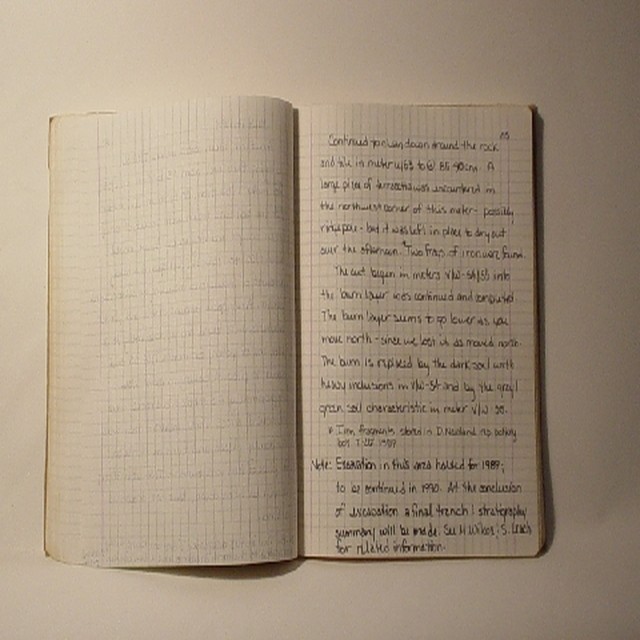 Continued to clean down around the rock
and tile in meter to 85-90cm. A
large piece of terracotta was encountered in
the northwest corner of this meter - possibly
ridgepole - but it was left in place to dry out
over the afternoon. Two frags of iron were found.
The cut began in meters V/W-54/55 into
the burn layer was continued and completed
The burn layer seems to go lower as you
move north - since we lost it as moved north.
The burn is replaced by the dark soil with
heavy inclusions in V/W-54 and by the grey/
green soil characteristic in meter V/W-55.
* Iron fragments stored in D. Neiland pottery
box 1989
Note: Excavation in this area halted for 1989;
to be continued in 1990. At the conclusion
of excavation a final trench / stratigraphy
summary will be made. See H. Wilkes; S. Leach
for related information.